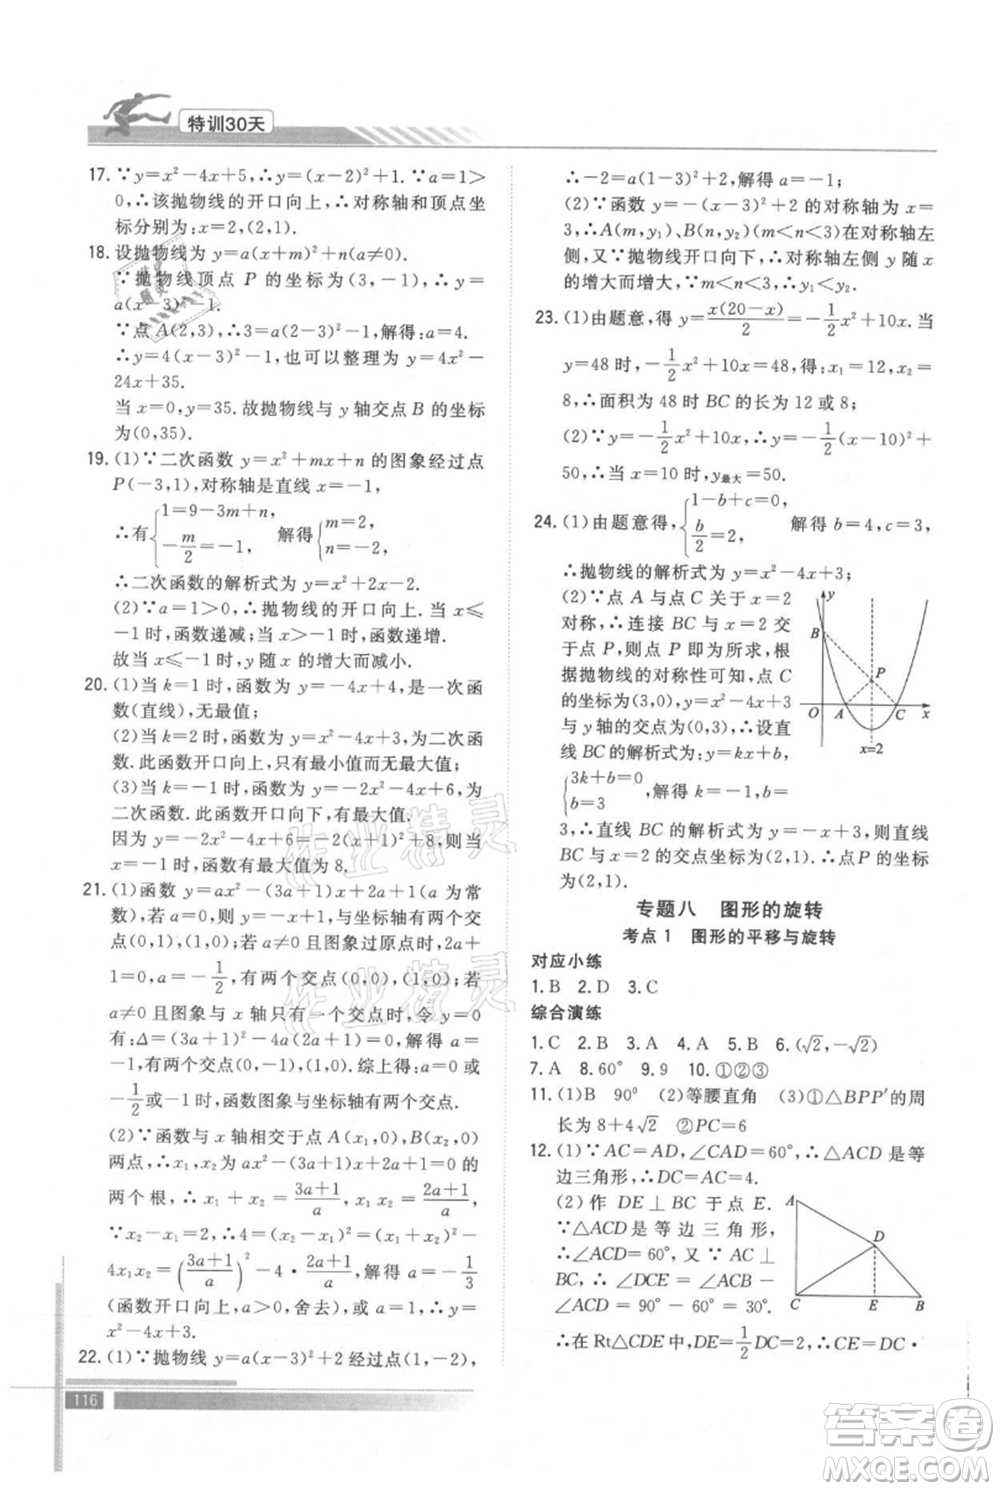 特训30天
17. ∵y=x²-4x+5,∴y=(x-2)²+1. ∵a=1>
0,∴该抛物线的开口向上,∴对称轴和顶点坐
标分别为:x=2,(2,1).
18. 设抛物线为 y=a(x+m)²+n(a≠0).
∵抛物线顶点 P 的坐标为(3,-1),∴y=
a(x-3)²-1.
∵点 A(2,3),∴3=a(2-3)²-1,解得:a=4.
∴y=4(x-3)²-1,也可以整理为 y=4x²-
24x+35.
当 x=0,y=35. 故抛物线与 y 轴交点 B 的坐标
为(0,35).
19. (1)∵二次函数 y=x²+mx+n 的图象经过点
P(-3,1),对称轴是直线 x=-1,
∴有{1=9-3m+n, -m/2=-1, 解得{m=2, n=-2.
∴二次函数的解析式为 y=x²+2x-2.
(2)∵a=1>0,∴抛物线的开口向上. 当 x≤
-1 时,函数递减;当 x>-1 时,函数递增.
故当 x≤-1 时,y 随 x 的增大而减小.
20. (1)当 k=1 时,函数为 y=-4x+4,是一次函
数(直线),无最值;
(2)当 k=2 时,函数为 y=x²-4x+3,为二次函
数. 此函数开口向上,只有最小值而无最大值;
(3)当 k=-1 时,函数为 y=-2x²-4x+6,为
二次函数. 此函数开口向下,有最大值.
因为 y=-2x²-4x+6=-2(x+1)²+8,则当
x=-1 时,函数有最大值为 8.
21. (1)函数 y=ax²-(3a+1)x+2a+1(a 为常
数),若 a=0,则 y=-x+1,与坐标轴有两个交
点(0,1),(1,0);a≠0 且图象过原点时,2a+1=
0,a=-1/2,有两个交点(0,0),(1,0);
a≠0 且图象与 x 轴只有一个交点时,令 y=0
有:Δ=(3a+1)²-4a(2a+1)=0,解得 a=
-1,有两个交点(0,-1),(1,0). 综上得:a=0 或
-1/2或-1 时,函数图象与坐标轴有两个交点.
(2)∵函数与 x 轴相交于点 A(x₁,0),B(x₂,0)
两点,∴x₁,x₂ 为 ax²-(3a+1)x+2a+1=0 的
两个根,∴x₁+x₂=(3a+1)/a,x₁x₂=(2a+1)/a.
∵x₂-x₁=2,∴4=(x₂-x₁)²=(x₁+x₂)²-
4x₁x₂=((3a+1)/a)²-4·(2a+1)/a,解得 a=-1/3
(函数开口向上,a>0,舍去)或 a=1,∴y=
x²-4x+3.
22. (1)∵抛物线 y=a(x-3)²+2 经过点(1,-2),
∴-2=a(1-3)²+2,解得 a=-1;
(2)∵函数 y=-(x-3)²+2 的对称轴为 x=
3,∴A(m,y₁)、B(n,y₂)(m<n<3)在对称轴左
侧,又∵抛物线开口向下,∴对称轴左侧 y 随 x
的增大而增大,∵m<n<3,∴y₁<y₂.
23. (1)由题意,得 y=x(20-x)/2=-1/2x²+10x. 当
y=48 时,-1/2x²+10x=48,得:x₁=12,x₂=
8,∴面积为 48 时 BC 的长为 12 或 8;
(2)∵y=-1/2x²+10x,∴y=-1/2(x-10)²+
50,∴当 x=10 时,y最大=50.
24. (1)由题意得,{1-b+c=0, b/2=2, 解得 b=4,c=3,
∴抛物线的解析式为 y=x²-4x+3;
(2)∵点 A 与点 C 关于 x=2
对称,∴连接 BC 与 x=2 交
于点 P,则点 P 即为所求,根
据抛物线的对称性可知,点 C
的坐标为(3,0),y=x²-4x+3
与 y 轴的交点为(0,3),∴设直
线 BC 的解析式为:y=kx+b,
{3k+b=0, b=3, 解得 k=-1,b=
3,∴直线 BC 的解析式为:y=-x+3,则直线
BC 与 x=2 的交点坐标为:(2,1),∴点 P 的坐标
为:(2,1).
y
B
P
O
A
C
x
x=2
专题八 图形的旋转
考点 1 图形的平移与旋转
对应小练
1. B 2. D 3. C
综合演练
1. C 2. B 3. A 4. A 5. D 6. (√2,-√2)
7. A 8. 60° 9. 9 10. ①②③
11. (1)B 90° (2)等腰直角 (3)①△BPP′的周
长为 8+4√2 ②PC=6
12. (1)∵AC=AD,∠CAD=60°,∴△ACD 是等
边三角形,∴DC=AC=4.
(2)作 DE⊥BC 于点 E.
∵△ACD 是等边三角形,
∴∠ACD=60°,又∵AC⊥
BC,∴∠DCE=∠ACB-
∠ACD=90°-60°=30°,
∴在 Rt△CDE 中,DE=1/2DC=2,∴CE=DC·
A
D
C
E
B
116
作业精灵
作业精灵
答案圈
MXQE.COM